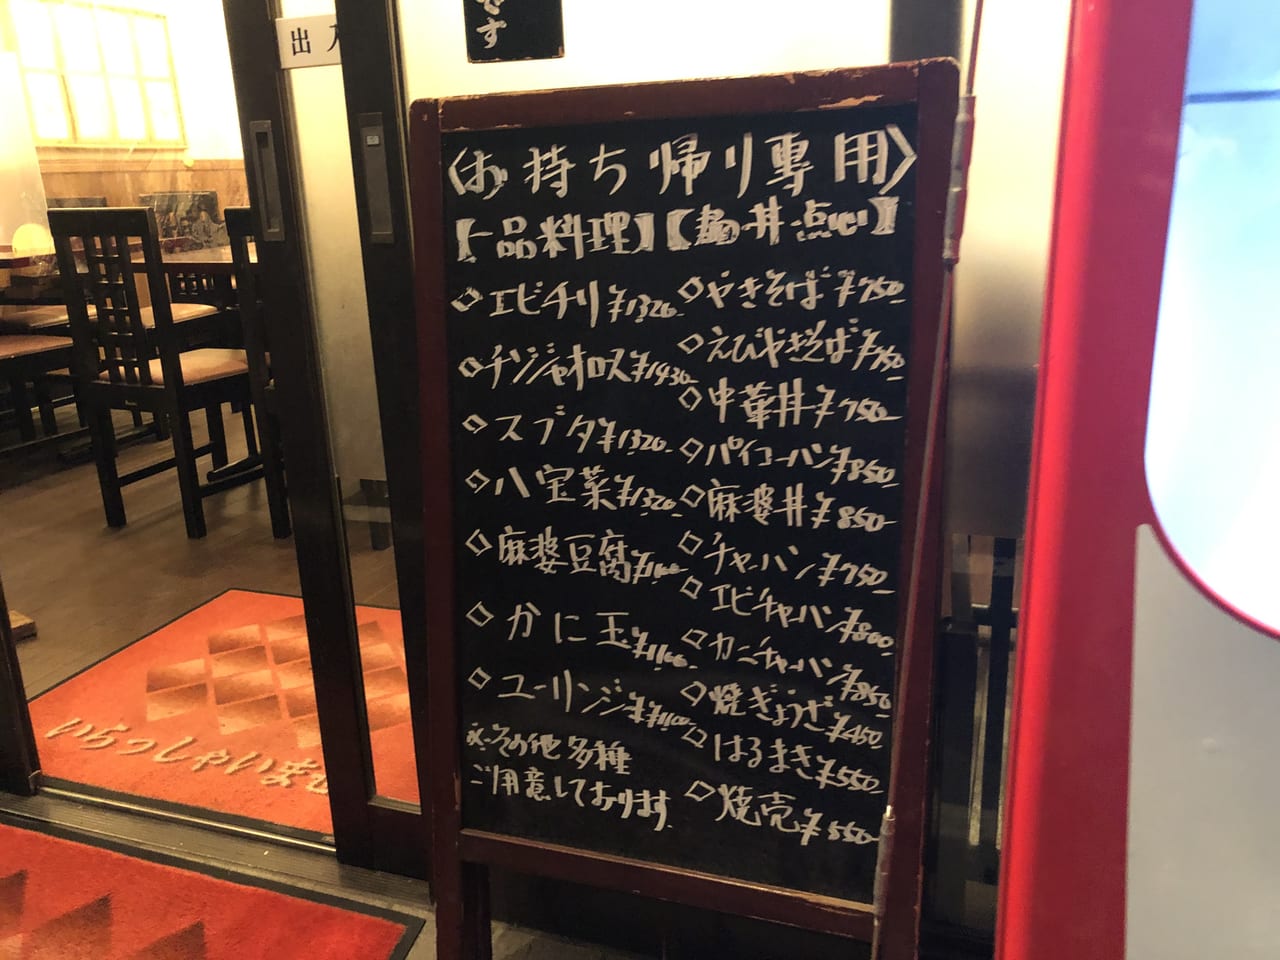 です
出入
〈お持ち帰り専用〉
【一品料理】【麺・丼・点心】
◇エビチリ¥1320-
◇チンジャオロス¥1430-
◇スブタ¥1320-
◇八宝菜¥1320-
◇麻婆豆腐¥1100
◇かに玉¥1100-
◇ユーリンジー¥1100-
※その他多種
ご用意しております
◇やきそば¥750-
◇えびやきそば¥750
◇中華丼¥750-
◇パイコーハン¥850-
◇麻婆丼¥850-
◇チャーハン¥750-
◇エビチャーハン¥800-
◇カニチャーハン¥850
◇焼ぎょうざ¥450
◇はるまき¥550
◇焼売¥550-
いらっしゃいませ